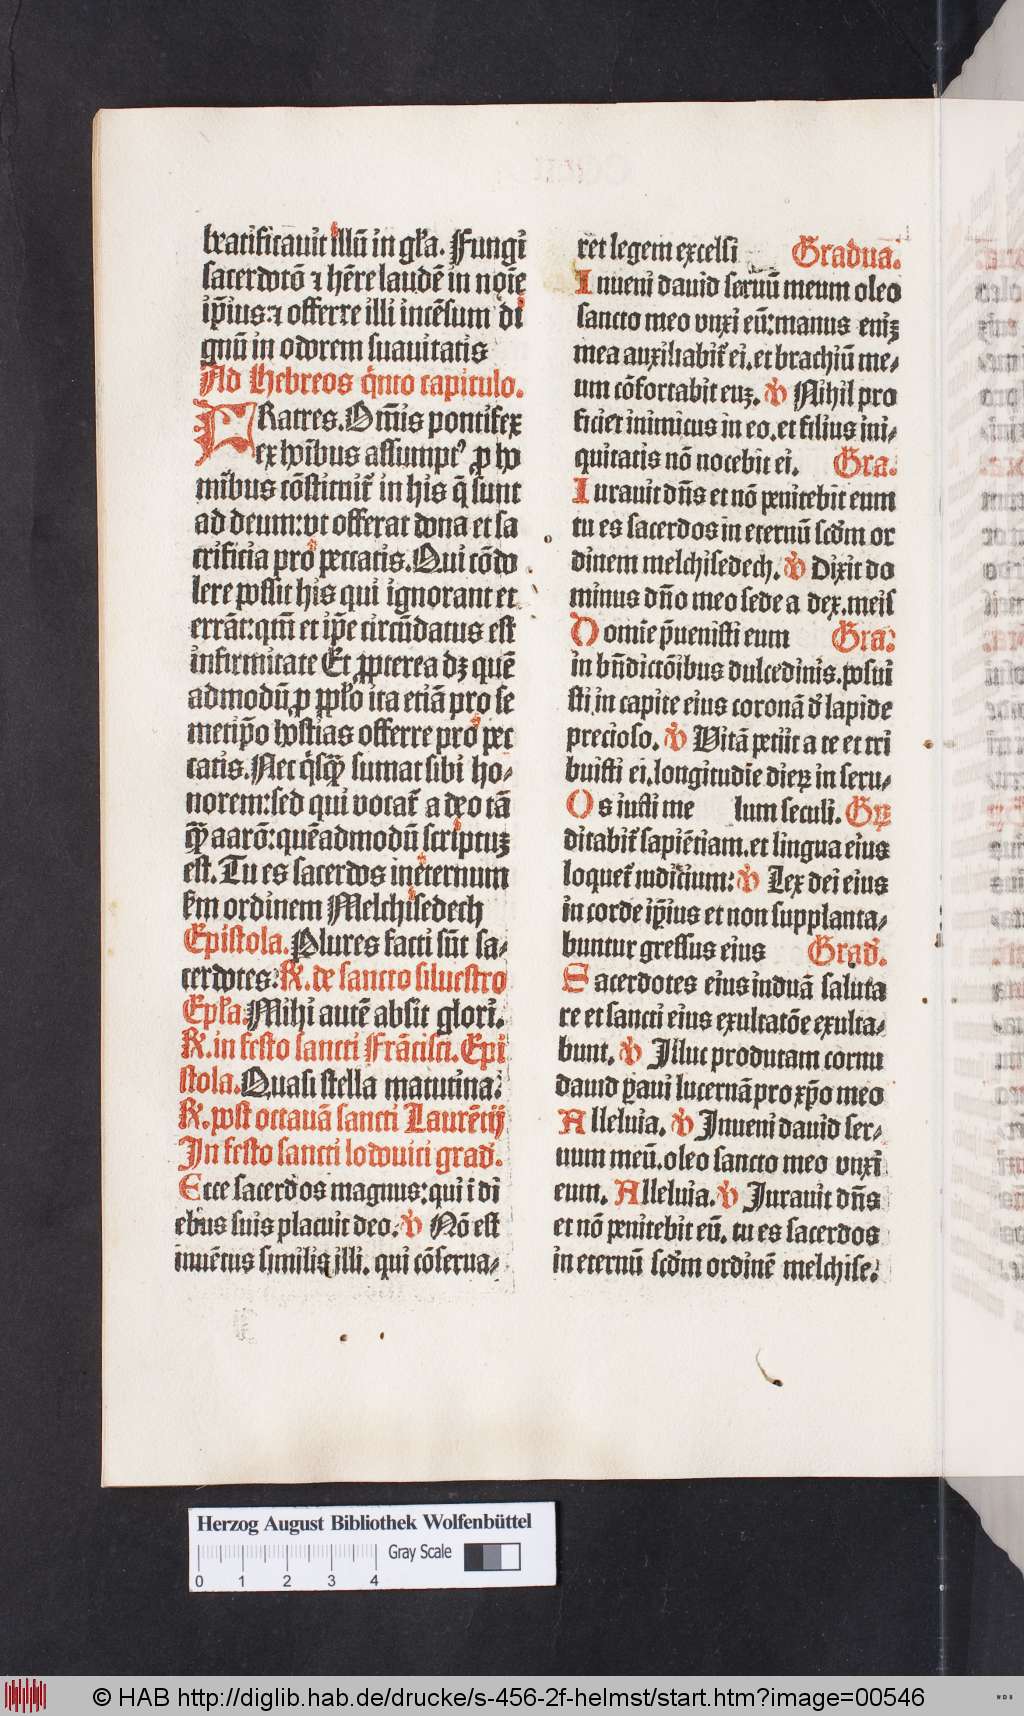 beatificauit illū in gľa. Fungi
sacerdotō ⁊ hēre laudē in noīe
ip̄ius:⁊ offerre illi incēsum di
gnū in odorem suauitatis
Ad Hebreos q̇nto capitulo.
FRatres. Om̄is pontifex
ex hoībus assumptꝰ ꝓ ho
minibus cōstituit᷑ in his q̄ sunt
ad deum:vt offerat dona et sa
crificia pro peccatis. Qui cōdo
lere possit his qui ignorant et
errāt:qm̄ et ip̄e circūdatus est
infirmitate Et ꝓpterea dꝫ quē
admodū ꝓ pp̄lo ita etiā pro se
metip̄o hostias offerre pro pec
catis. Nec q̇sqꝫ̄ sumat sibi ho⸗
norem:sed qui vocat᷑ a deo tā
qꝫ̄ aarō:quēadmodū scriptuꝫ
est. Tu es sacerdos in eternum
ẜm ordinem Melchisedech
Epistola. Plures facti sūt sa⸗
cerdotes. R̷. de sancto siluestro
Epľa. Mihi autē absit glori.
R̷. in festo sancti Frācisci. Epi
stola. Quasi stella matutina.
R̷. post octauā sancti Laurētij
In festo sancti lodouici grad̓.
Ecce sacerdos magnus:qui ī di
ebus suis placuit deo. ℣ Nō est
inuētus similis illi. qui cōserua⸗
ret legem excelsi Gradua.
Inueni dauid seruū meum oleo
sancto meo vnxi eū:manus eniꝫ
mea auxiliabit᷑ ei. et brachiū me⸗
um cōfortabit euꝫ. ℣ Nihil pro
ficiet inimicus in eo. et filius ini⸗
quitatis nō nocebit ei. Gra.
Iurauit dn̄s et nō penitebit eum
tu es sacerdos in eternū scd̄m or
dinem melchisedech. ℣ Dixit do
minus dn̄o meo sede a dex. meis
Domie p̄uenisti eum Gra.
in bn̄dictōibus dulcedinis. posui
sti in capite eius coronā d̓ lapide
precioso. ℣ Vitā petijt a te et tri
buisti ei. longitudīe dieꝝ in secu⸗
Os iusti me lum seculi. Gꝝ
ditabit᷑ sapiētiam. et lingua eius
loquet᷑ iudicium: ℣ Lex dei eius
in corde ip̄ius et non supplanta⸗
buntur gressus eius Grad̓.
Sacerdotes eius induā saluta
re et sancti eius exultatōe exulta⸗
bunt. ℣ Illuc producam cornu
dauid p̄aui lucernā pro xp̄o meo
Alleluia. ℣ Inueni dauid ser⸗
uum meū. oleo sancto meo vnxi
eum. Alleluia. ℣ Jurauit dn̄s
et nō penitebit eū. tu es sacerdos
in eternū scd̄m ordinē melchise.
Herzog August Bibliothek Wolfenbüttel
Gray Scale
0 1 2 3 4
© HAB http://diglib.hab.de/drucke/s-456-2f-helmst/start.htm?image=00546